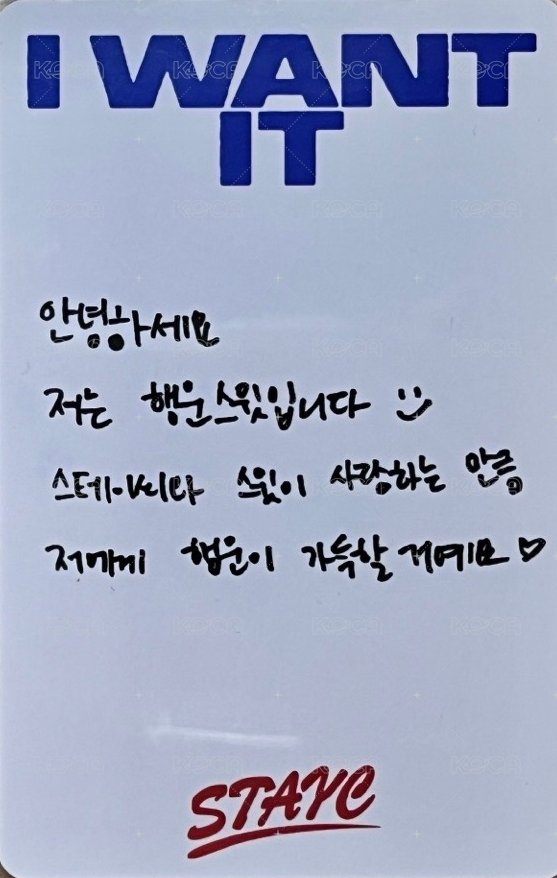 I WANT
IT
안녕하세요
저는 행운스윗입니다 :)
스테이씨와 스윗이 사랑하는 만큼
저에게 행운이 가득할 거예요♡
STAYC
KOCA